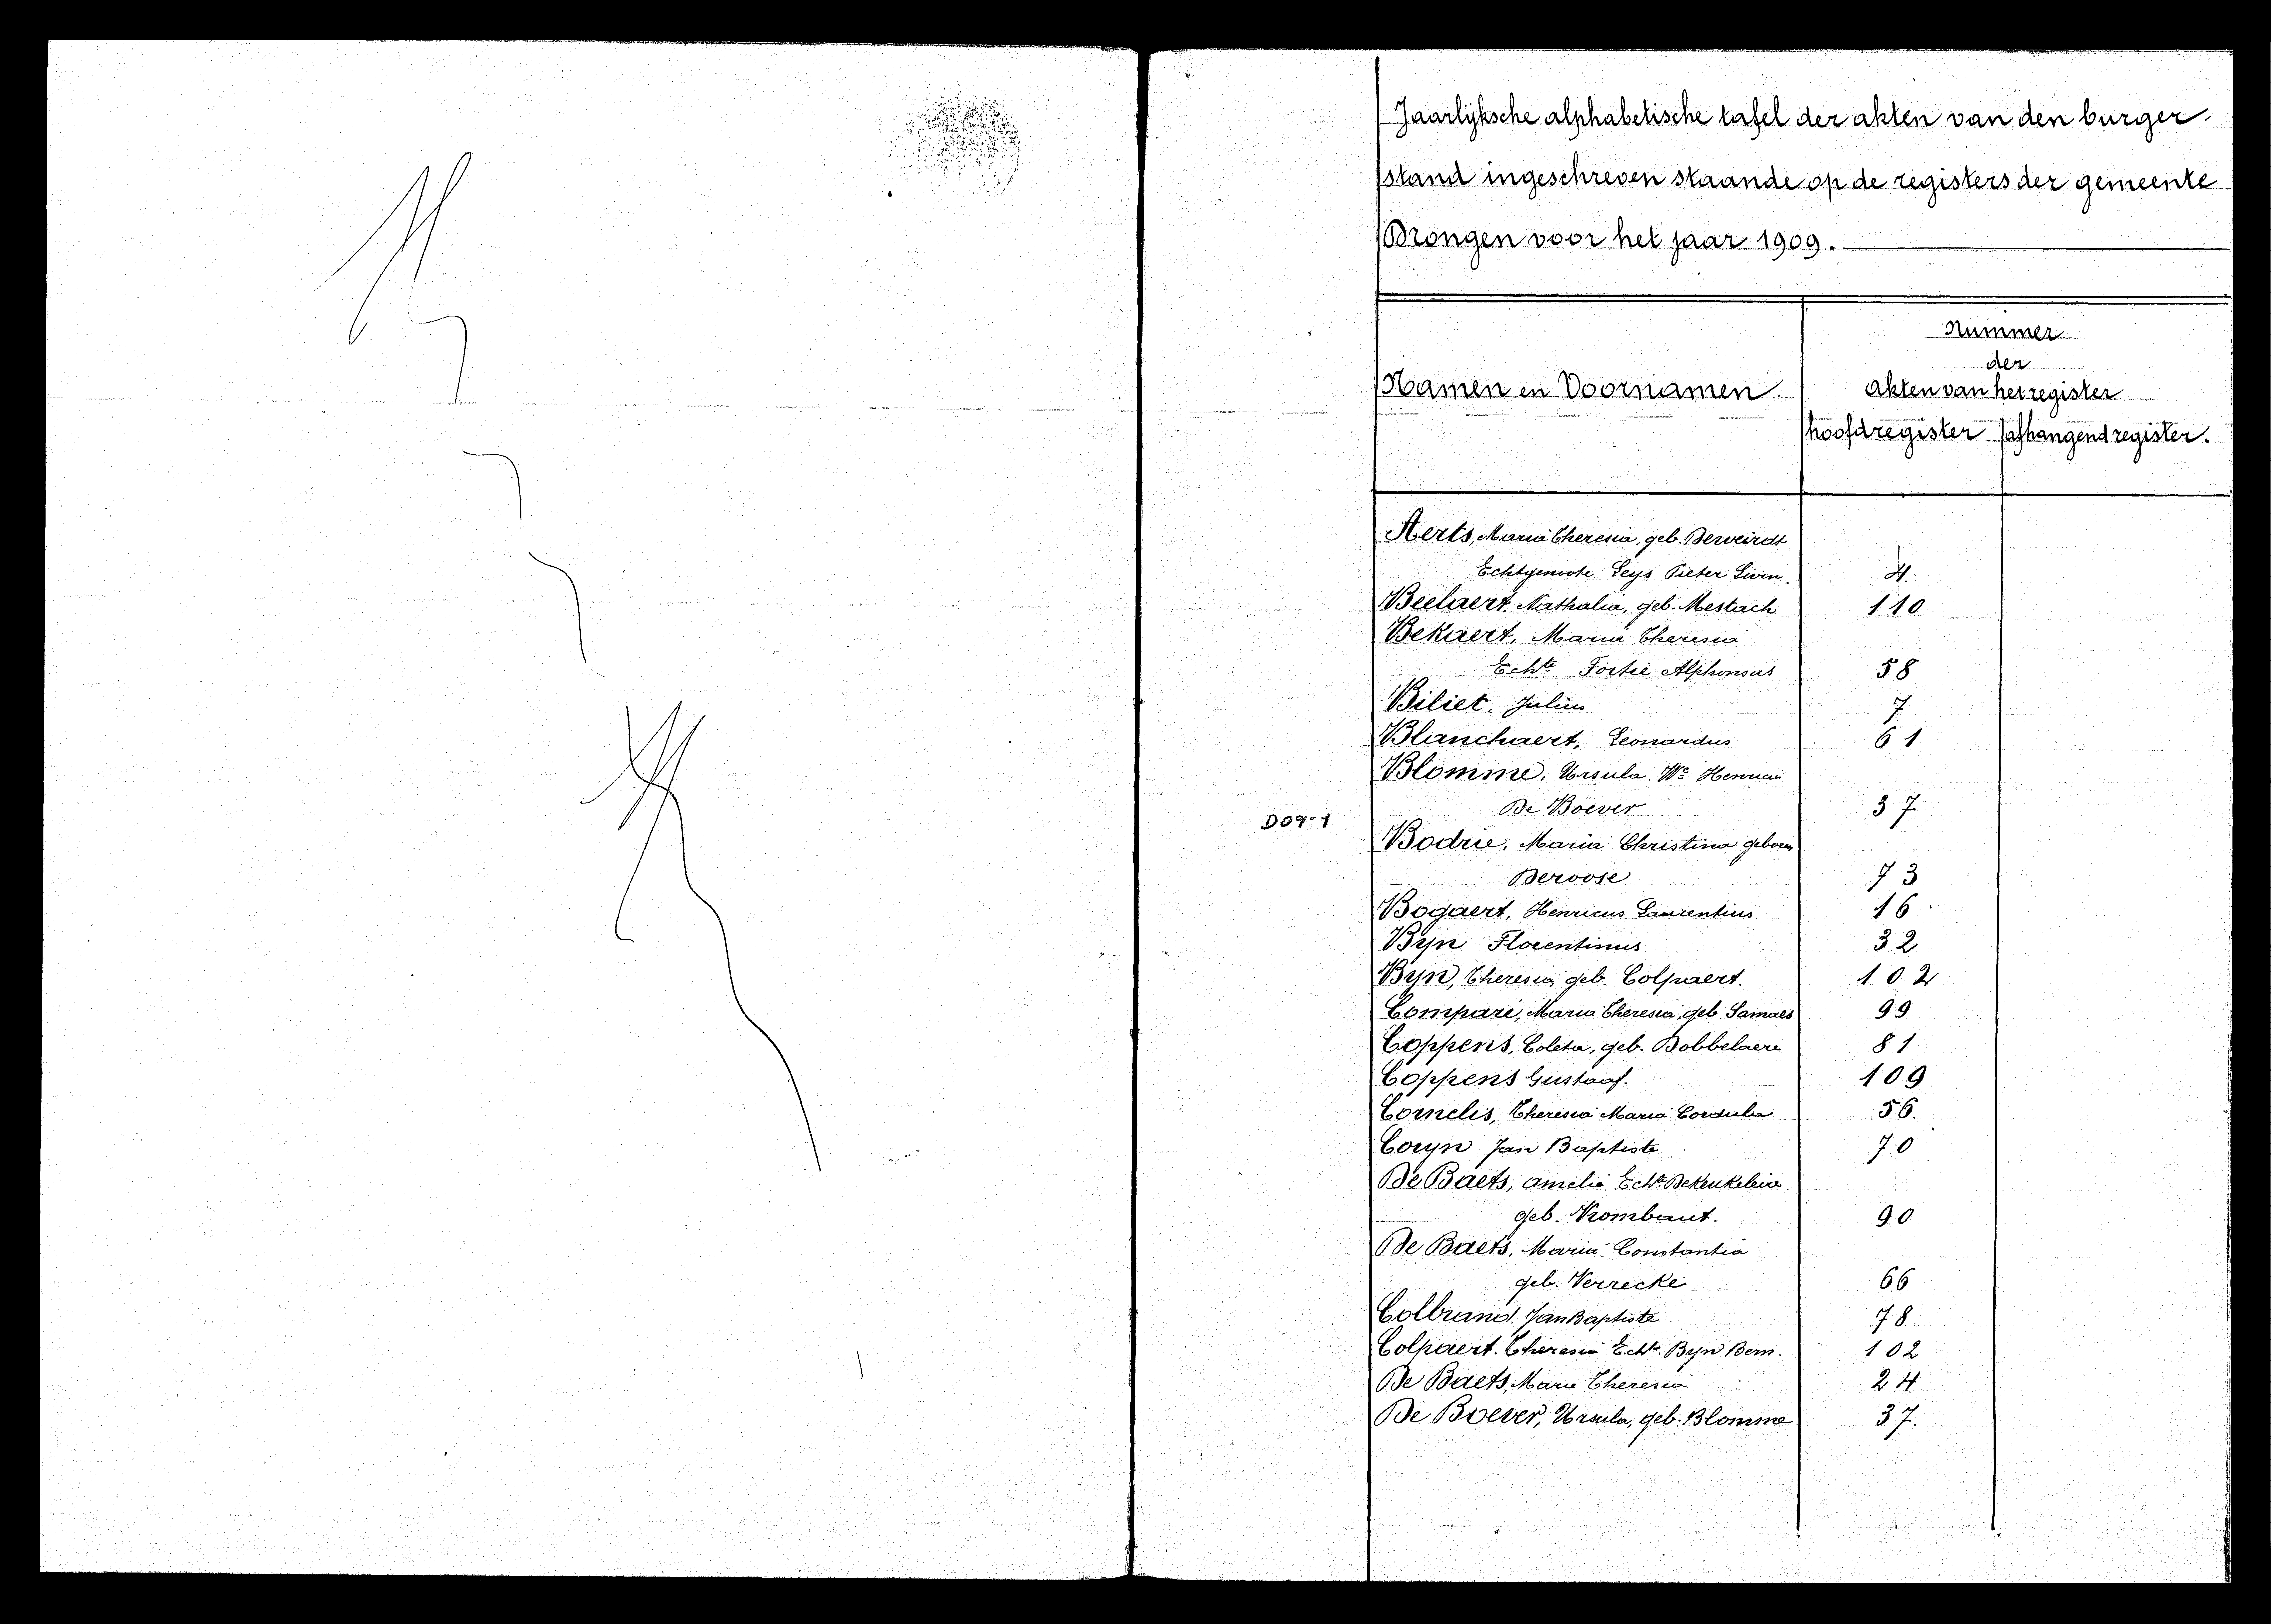 Jaarlijksche alphabetische tafel der akten van den burger-
stand ingeschreven staande op de registers der gemeente
Drongen voor het jaar 1909.
Nummer
der
Namen en Voornamen.
akten van het register
hoofdregister afhangend register.
Aerts, Maria Theresia, geb. Derveirdt
Echtgenoote Seys Pieter Livin. 4.
Beelaert, Nathalia, geb. Mestach 110
Bekaert, Maria Theresia
Echte Fortie Alphonsus 58
Biliet, Julius 7
Blanchaert, Leonardus 61
Blomme, Ursula. We Henricus
De Boever 37
D09-1
Bodrie, Maria Christina geboren
Deroose 73
Bogaert, Henricus Laurentius 16
Byn Florentinus 32
Byn, Theresia, geb. Colpaert. 102
Comparé, Maria Theresia, geb. Samaes 99
Coppens, Coleta, geb. Dobbelaere 81
Coppens Gustaaf. 109
Cornelis, Theresia Maria Cordula 56.
Coryn Jan Baptiste 70
De Baets, Amelia Echte Dekeukeleire
geb. Vrombaut. 90
De Baets, Maria Constantia
geb. Verrecke 66
Colbrand. Jan Baptiste 78
Colpaert. Theresia Echte. Byn Bern. 102
De Baets, Maria Theresia 24
De Boever, Ursula, geb. Blomme 37.